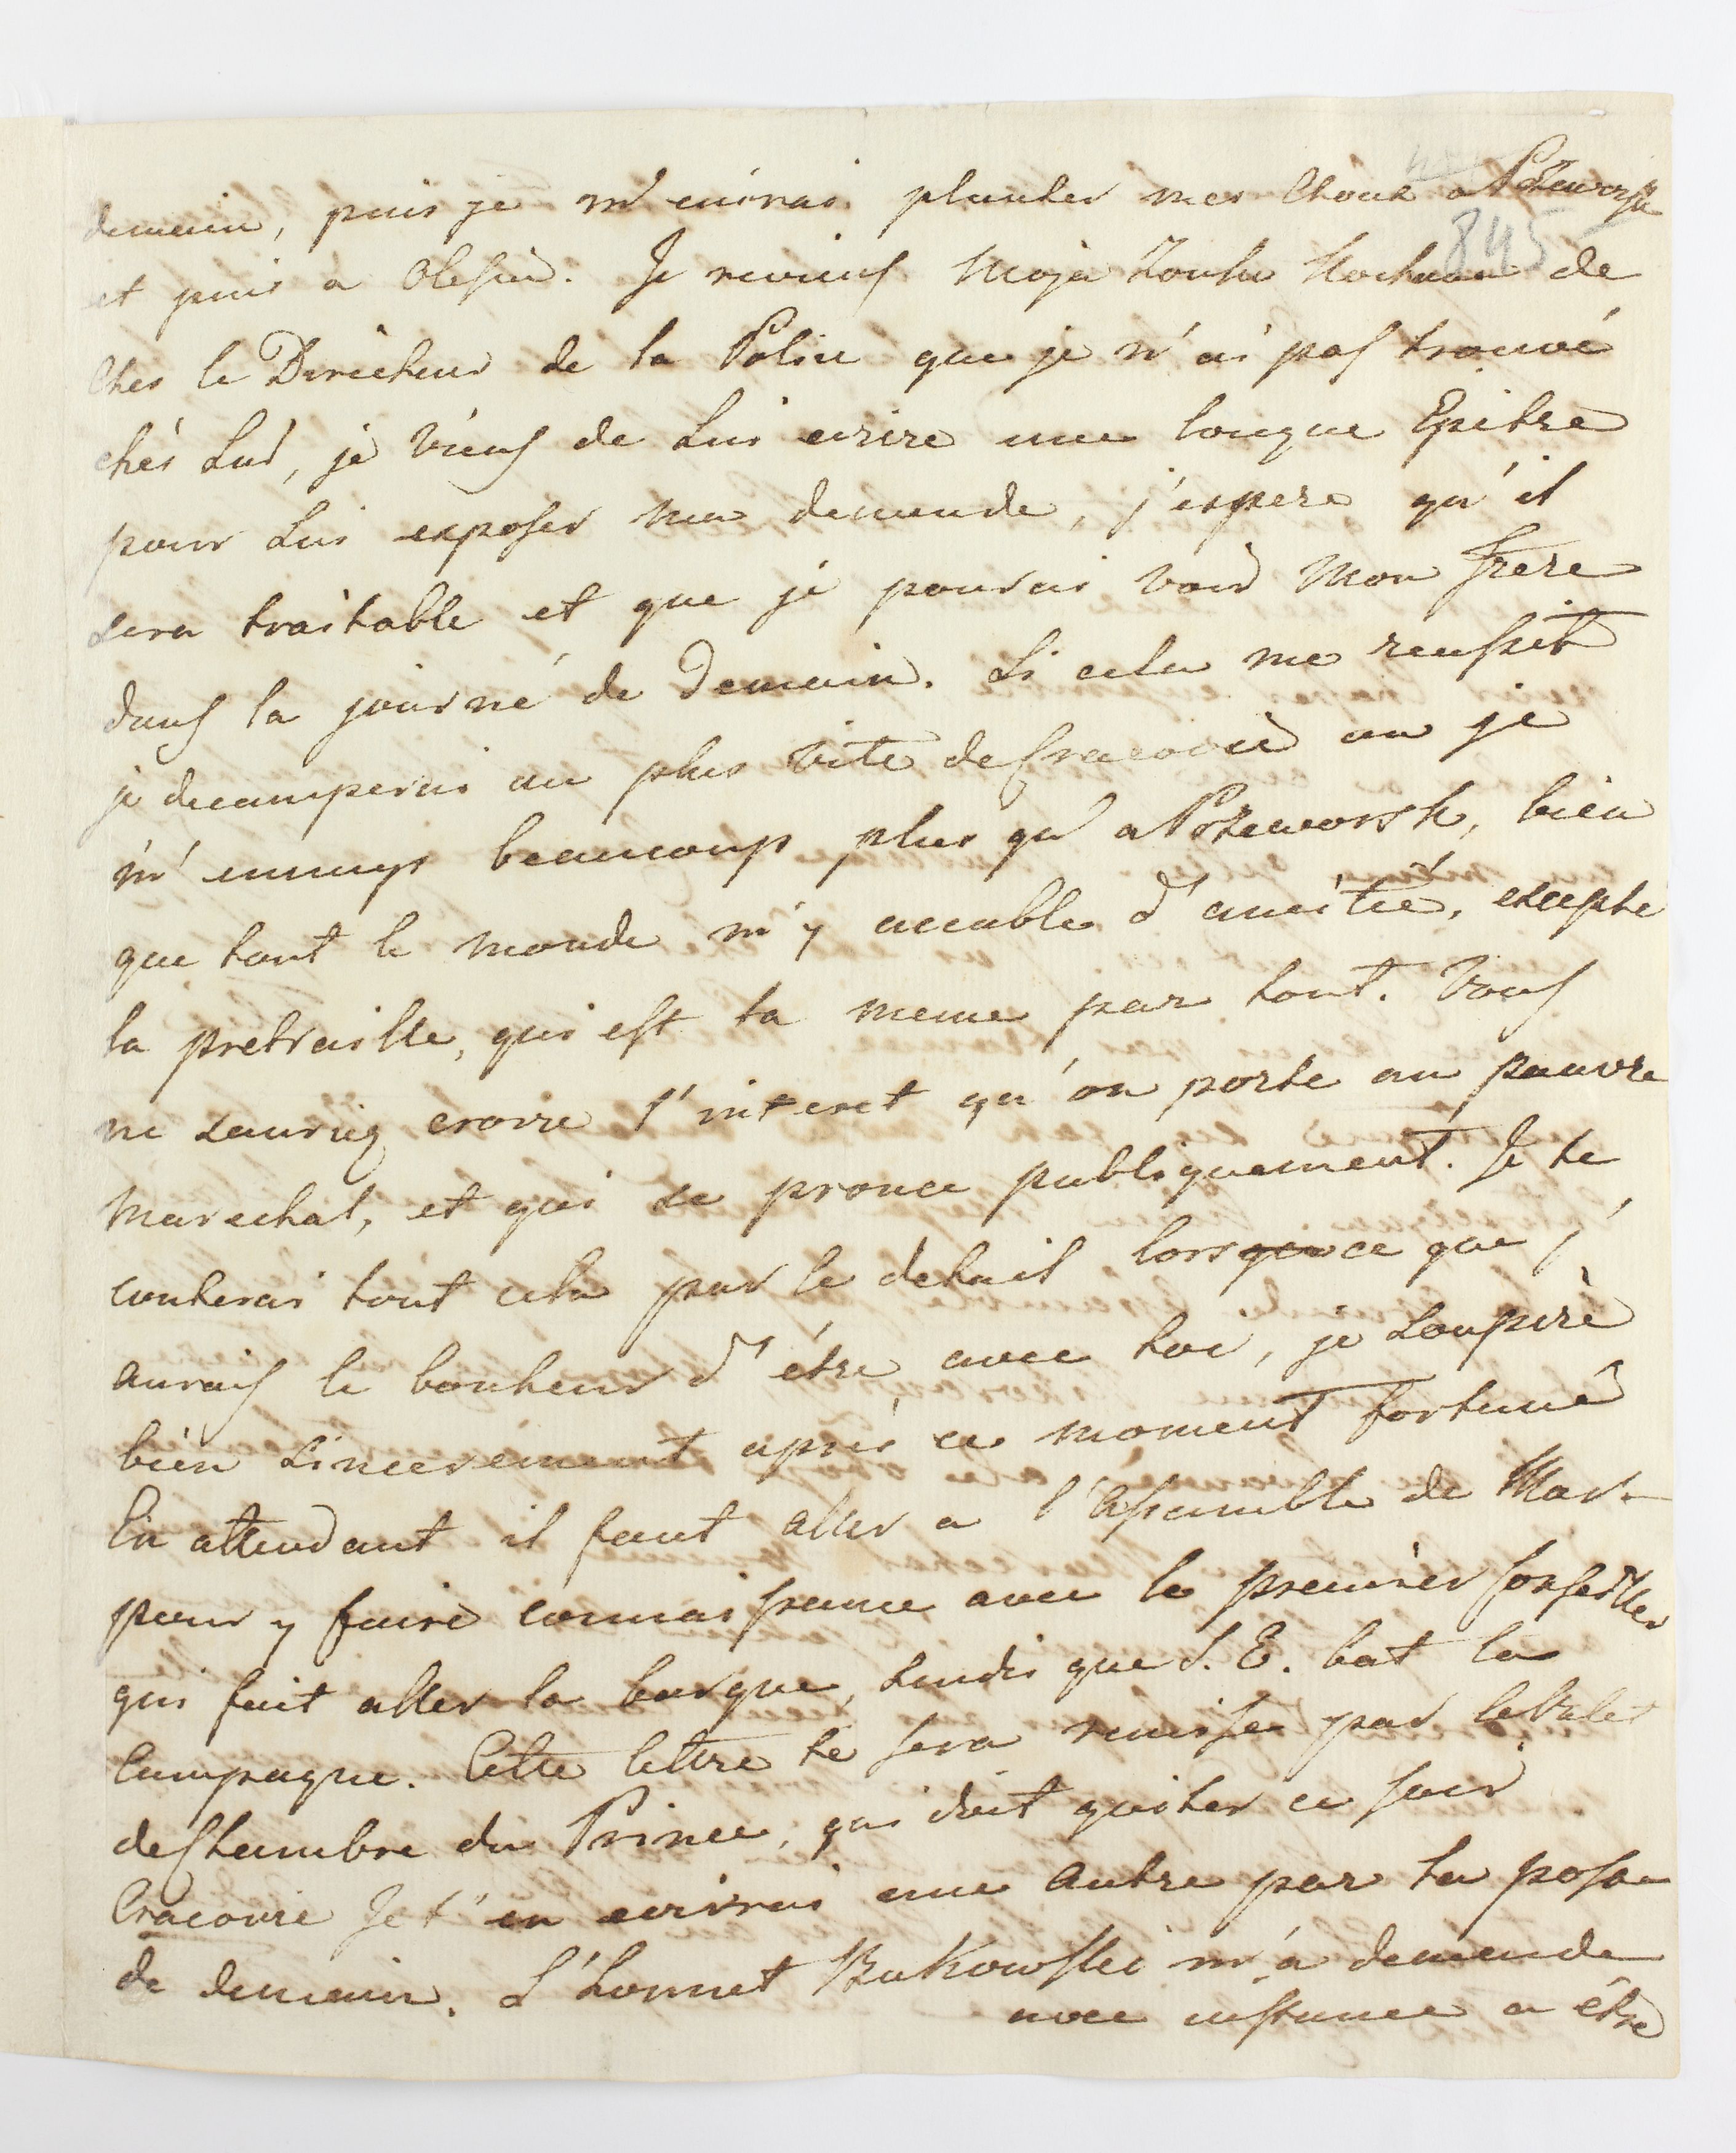 845
demain, puis je m'enirai planter mes Choux a Przeworsk
et puis a Olesin. Je reviens Moja Zonko Kochana de
Chés le Directeur de la Police que je n'ai pas trouvé
chés Lui, je viens de Lui ecrire une longue Epitre
pour Lui exposer ma demande, j'espere qu'il
sera traitable et que je pourai voir Mon frere
dans la journé de Demain. Si cela me reussit
je decamperai au plus vite de Cracovie ou je
m'ennuys beaucoup plus qu'a Przeworsk, bien
que tout le Monde m'y accable d'amitié, excepté
la pretraille, qui est la meme par tout. Vous
ne sauriez croire l'interet qu'on porte au pauvre
Marechal, et qui se pronce publiquement. Je te
conterai tout cela par le detail lorsque ce que j'
aurais le bonheur d'être avec toi, je soupire
bien sincerement aprés ce moment fortuné
En attendant il faut aller a l'assemblé de Mar.
pour y faire connaissance avec le premier Conseiller
qui fait aller la barque, tandis que S. E. bat la
Campagne. Cette lettre te sera remise par le Valet
de Chambre du Prince, qui doit quiter ce soir
Cracovie Je t'en ecrirai une Autre par la poste
de demain. L'honnet Bukowski m'a demandé
avec instance a être